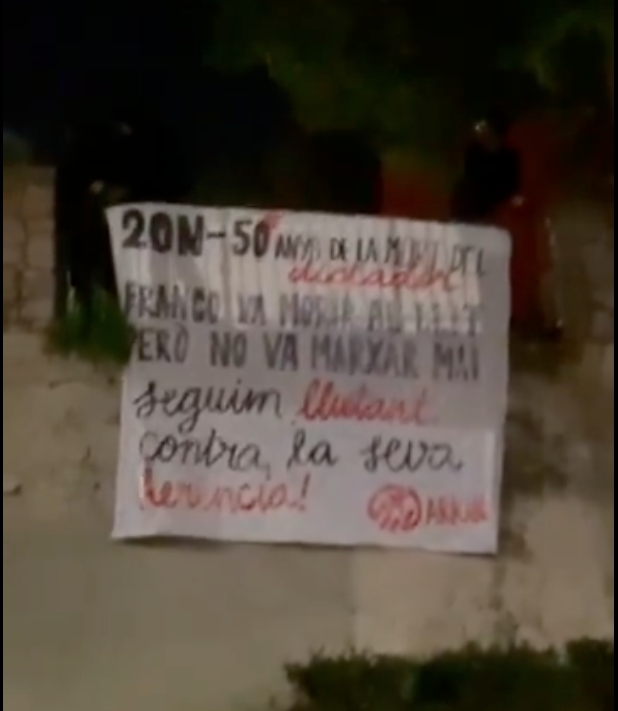 20N-50 ANYS DE LA MORT DEL
dictador
FRANCO VA MORIR AL LLIT
PERÒ NO VA MARXAR MAI
seguim lluitant
contra la seva
herència!
ARRAN